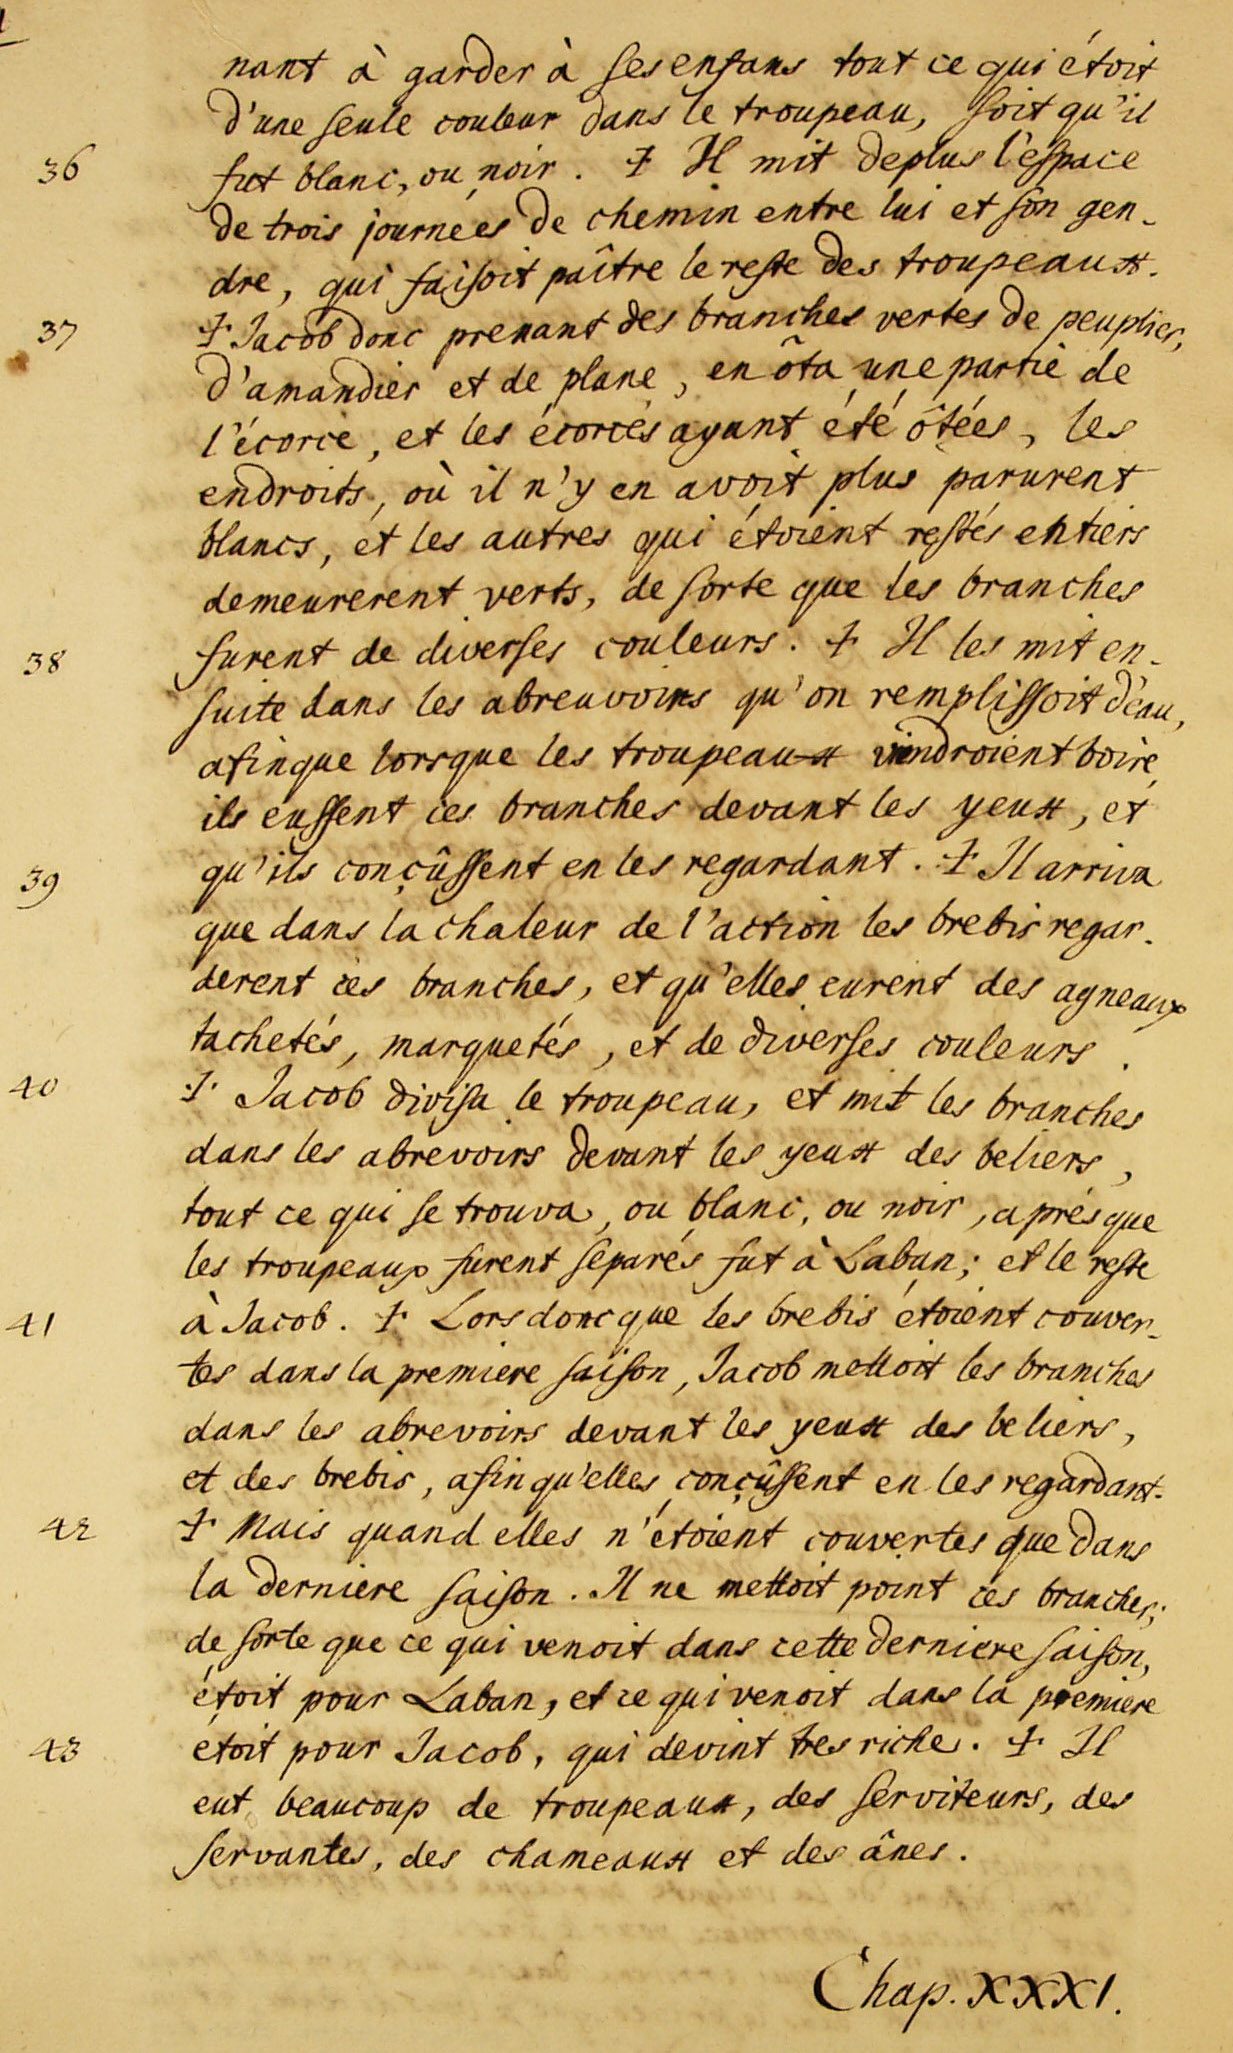 nant à garder à ses enfans tout ce qui étoit
d'une seule couleur dans le troupeau, soit qu'il
36 fut blanc, ou noir. ‡ Il mit deplus l'espace
de trois journées de chemin entre lui et son gen-
dre, qui faisoit paître le reste des troupeaux.
37 ‡ Jacob donc prenant des branches vertes de peuplier,
d'amandier et de plane, en ôta une partie de
l'écorce, et les écorces ayant été ôtées, les
endroits, où il n'y en avoit plus parurent
blancs, et les autres qui étoient restés entiers
demeurerent verts, de sorte que les branches
38 furent de diverses couleurs. ‡ Il les mit en-
suite dans les abreuvoirs qu'on remplissoit d'eau,
afinque lorsque les troupeaux viendroient boire,
ils eussent ces branches devant les yeux, et
39 qu'ils conçûssent en les regardant. ‡ Il arriva
que dans la chaleur de l'action les brebis regar-
derent ces branches, et qu'elles eurent des agneaux
tachetés, marquetés, et de diverses couleurs.
40 ‡ Jacob divisa le troupeau, et mit les branches
dans les abrevoirs devant les yeux des beliers,
tout ce qui se trouva, ou blanc, ou noir, aprés que
les troupeaux furent separés fut à Laban; et le reste
41 à Jacob. ‡ Lors donc que les brebis étoient couver-
tes dans la premiere saison, Jacob mettoit les branches
dans les abrevoirs devant les yeux des beliers,
et des brebis, afin qu'elles conçûssent en les regardant.
42 ‡ Mais quand elles n'étoient couvertes que dans
la derniere saison. Il ne mettoit point ces branches;
de sorte que ce qui venoit dans cette derniere saison,
étoit pour Laban, et ce qui venoit dans la premiere
43 étoit pour Jacob, qui devint tres riche. ‡ Il
eut beaucoup de troupeaux, des serviteurs, des
servantes, des chameaux et des ânes.
Chap. XXXI.